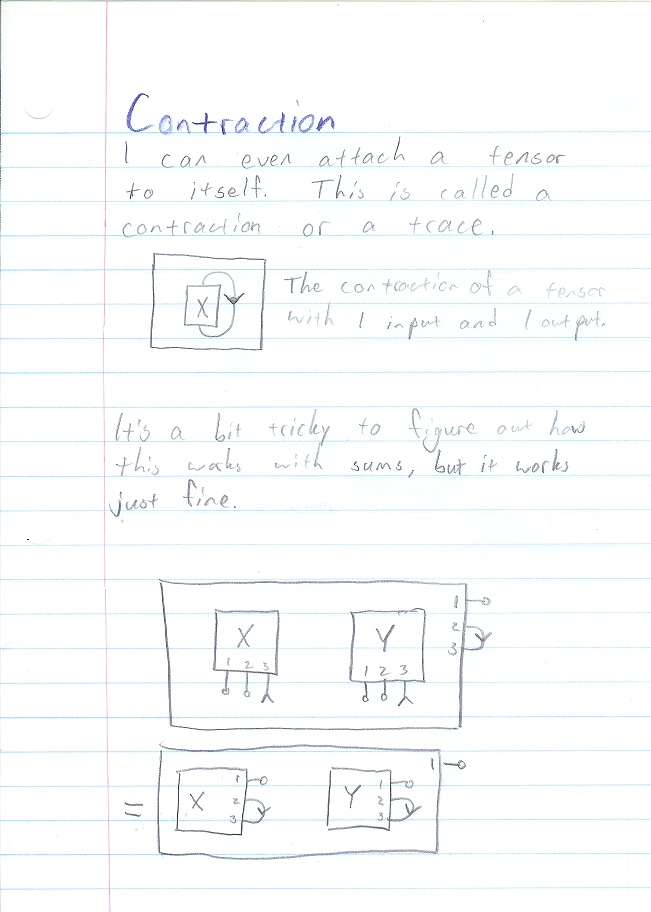 Contraction
I can even attach a tensor
to itself. This is called a
contraction or a trace.
X
The contraction of a tensor
with 1 input and 1 output.
It's a bit tricky to figure out how
this works with sums, but it works
just fine.
1
2
3
X
1 2 3
Y
1 2 3
=
1
X
1
2
3
Y
1
2
3